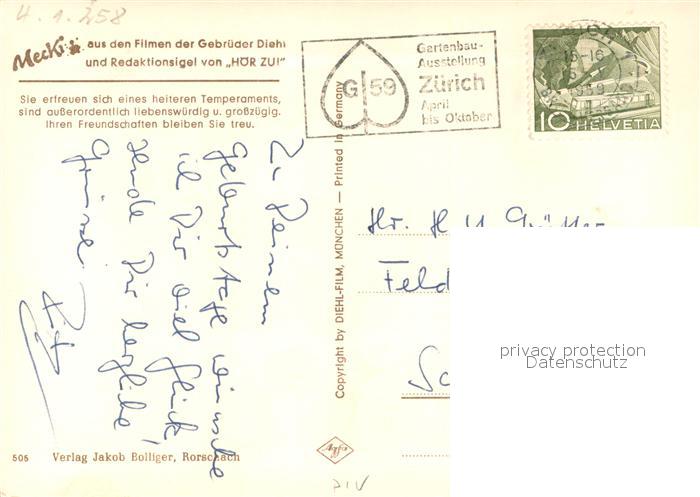 4.1.258
Mecki aus den Filmen der Gebrüder Diehl
und Redaktionsigel von „HÖR ZU!"
Sie erfreuen sich eines heiteren Temperaments,
sind außerordentlich liebenswürdig u. großzügig.
Ihren Freundschaften bleiben Sie treu.
Zu Deinem
Geburtstage wünsche
ich Dir viel Glück
sende Dir herzliche
Grüsse
505 Verlag Jakob Bolliger, Rorschach
Copyright by DIEHL-FILM, MÜNCHEN — Printed in Germany
Agfa
G 59
Gartenbau-
Ausstellung
Zürich
April
bis Oktober
15-16
10 HELVETIA
Hr. H
Feld
Sc
privacy protection
Datenschutz